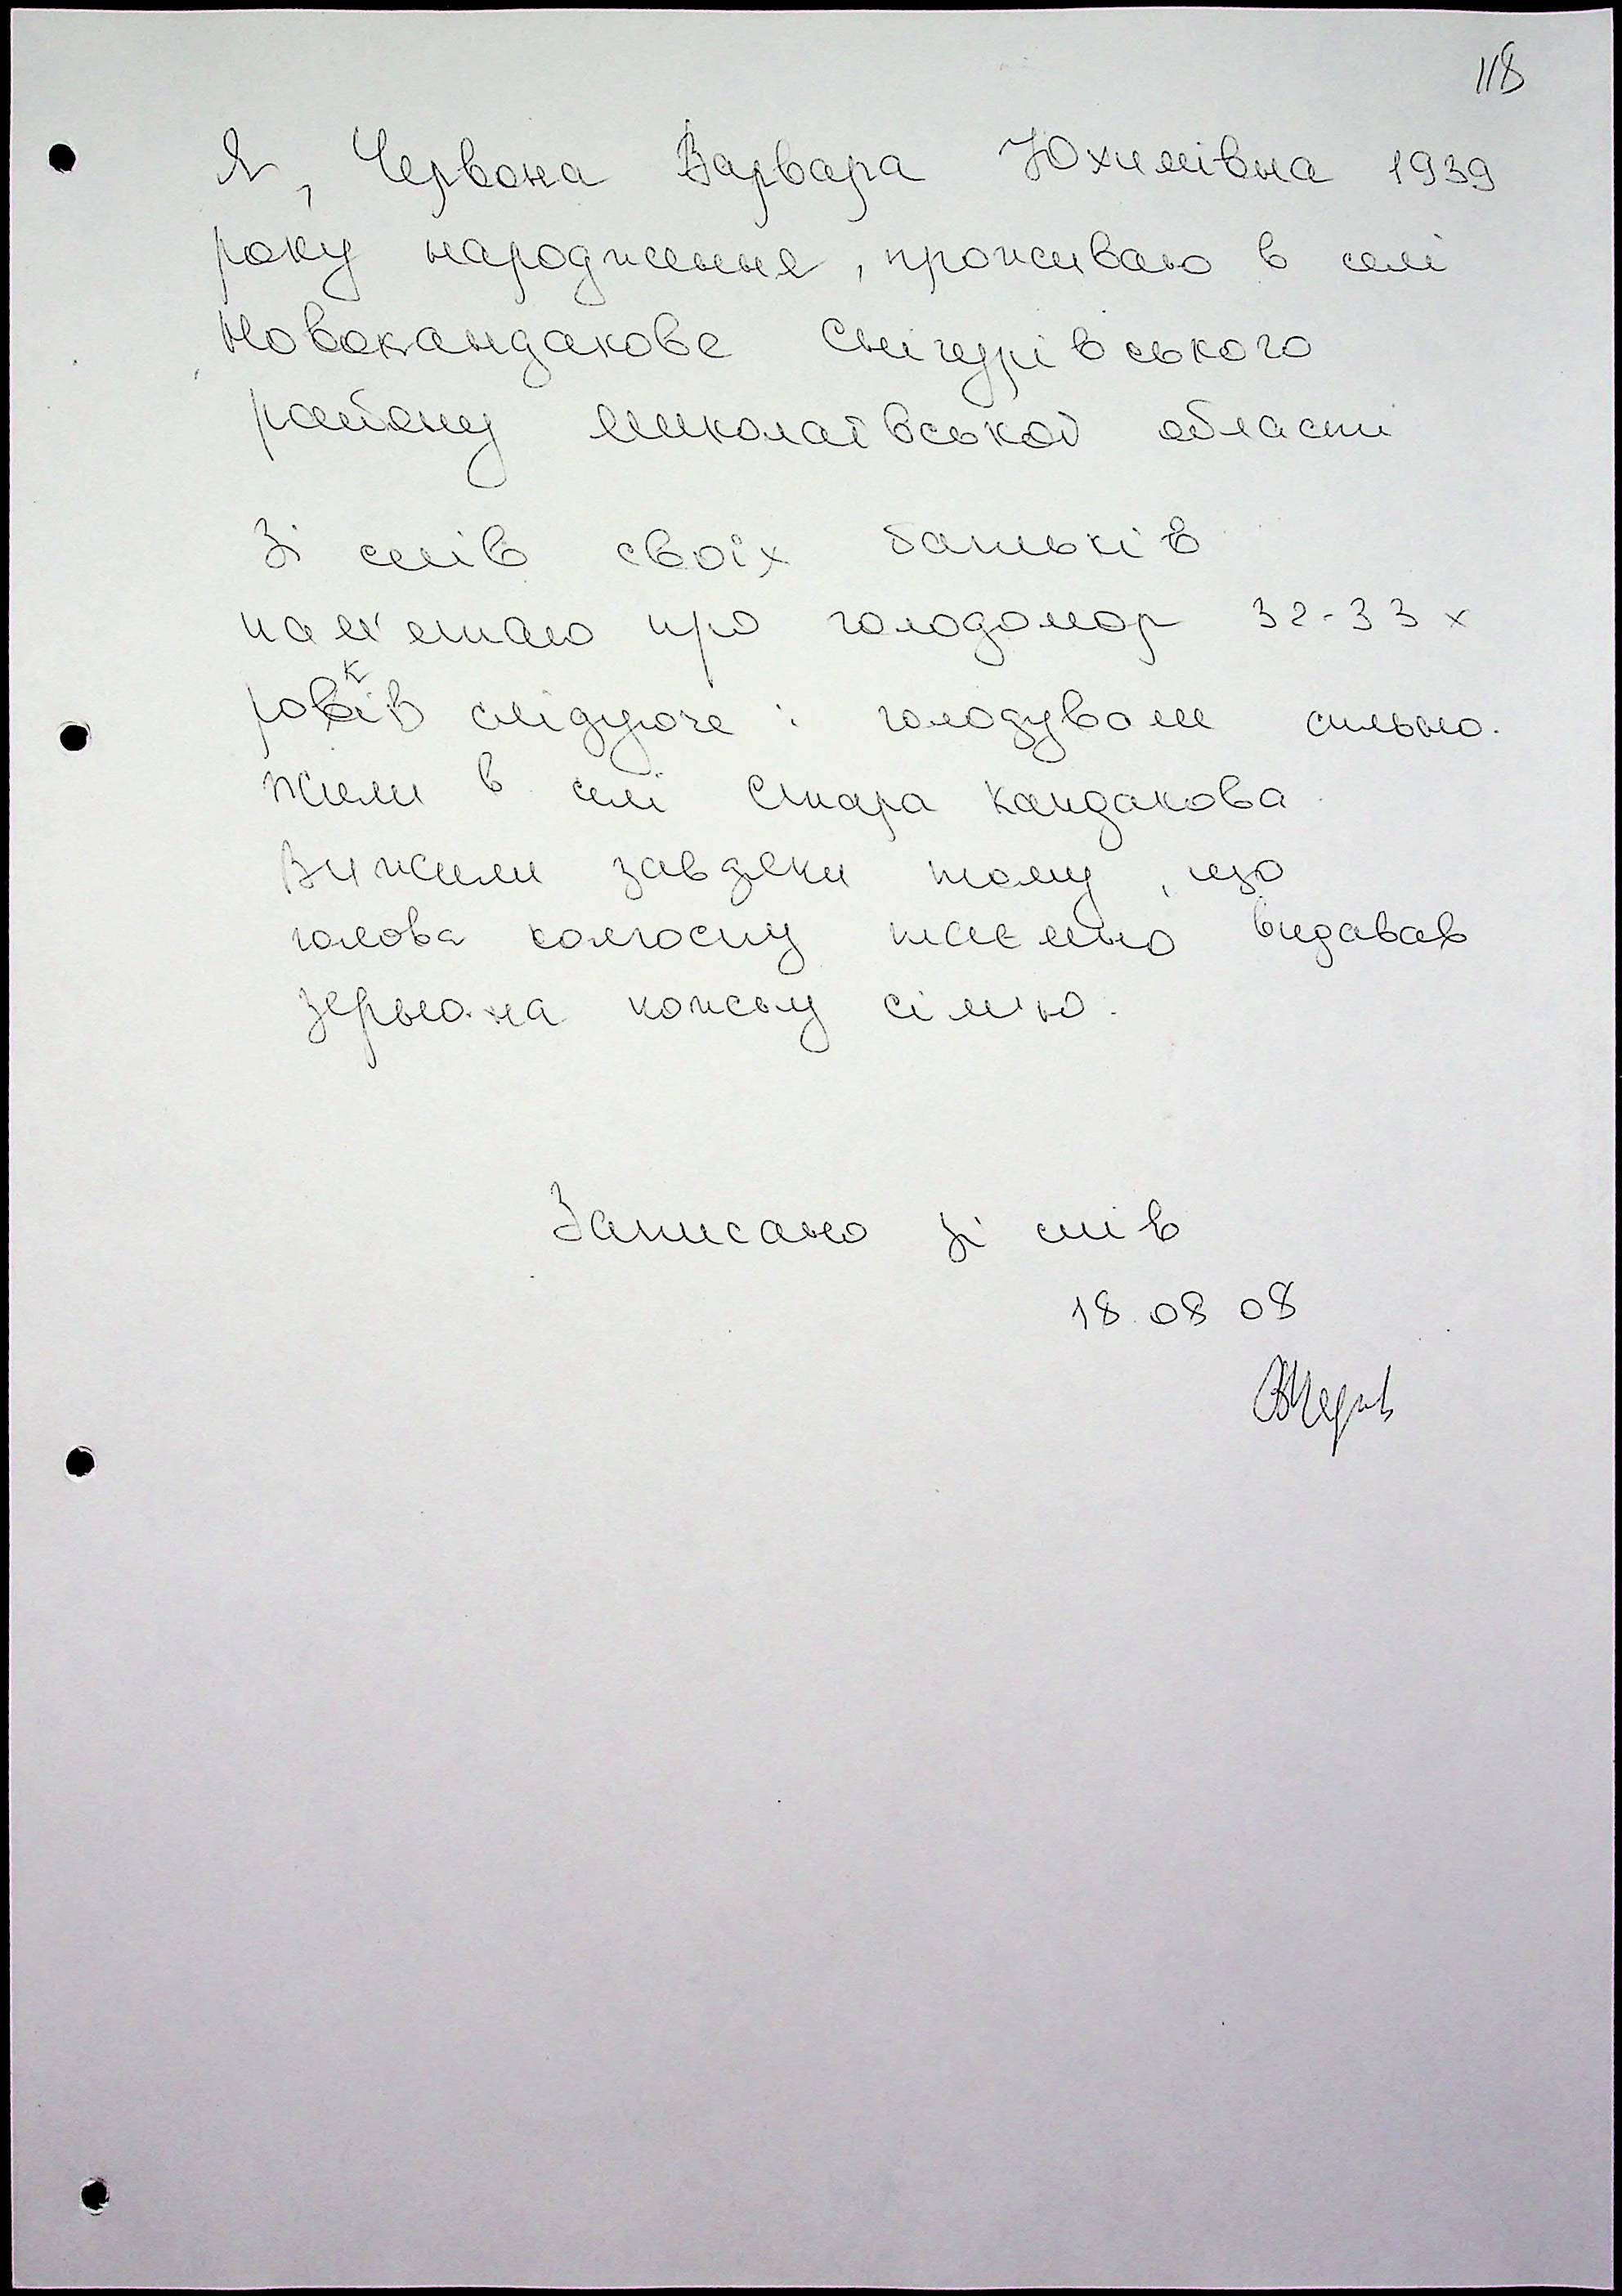 118
Я, Червона Варвара Юхимівна 1939
року народження, проживаю в селі
Новокандакове Снігурівського
району Миколаївської області
Зі слів своїх батьків
пам'ятаю про голодомор 32-33 х
років слідуюче: голодували сильно.
Жили в селі Стара Кандакова
Вижили завдяки тому, що
голова колгоспу таємно видавав
зерно на кожну сім'ю.
Записано зі слів
18.08 08